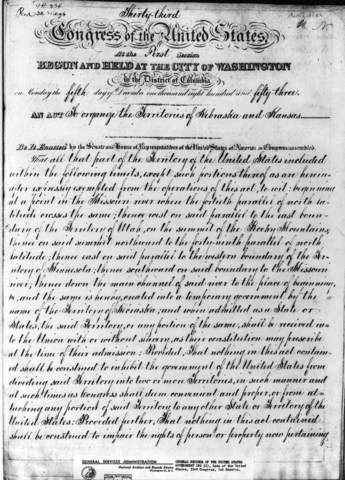 Thirty-third
Congress of the United States,
At the First Session
BEGUN AND HELD AT THE CITY OF WASHINGTON
in the District of Columbia
on Monday the fifth day of December one thousand eight hundred and fifty three.
AN ACT To organize the Territories of Nebraska and Kansas
Be it Enacted by the Senate and House of Representatives of the United States of America in Congress assembled,
That all that part of the Territory of the United States included
within the following limits, except such portions thereof as are herein-
after expressly exempted from the operations of this act, to wit: beginning
at a point in the Missouri river where the fortieth parallel of north la-
titude crosses the same; thence west on said parallel to the east boun-
dary of the Territory of Utah, on the summit of the Rocky Mountains;
thence on said summit northward to the forty-ninth parallel of north
latitude; thence east on said parallel to the western boundary of the Ter-
ritory of Minnesota; thence southward on said boundary to the Missouri
river; thence down the main channel of said river to the place of beginning,
be, and the same is hereby, created into a temporary government by the
name of the Territory of Nebraska; and when admitted as a State or
States, the said Territory, or any portion of the same, shall be received in-
to the Union with or without slavery, as their constitution may prescribe
at the time of their admission: Provided, That nothing in this act contain-
ed shall be construed to inhibit the government of the United States from
dividing said Territory into two or more Territories, in such manner and
at such times as Congress shall deem convenient and proper, or from at-
taching any portion of said Territory to any other State or Territory of the
United States: Provided further, That nothing in this act contained
shall be construed to impair the rights of person or property now pertaining
GENERAL SERVICES ADMINISTRATION
National Archives and Records Service
Washington 25, D. C.
GENERAL RECORDS OF THE UNITED STATES
GOVERNMENT (RG 11), Laws of the United
States, 33rd Congress, 1st Session.